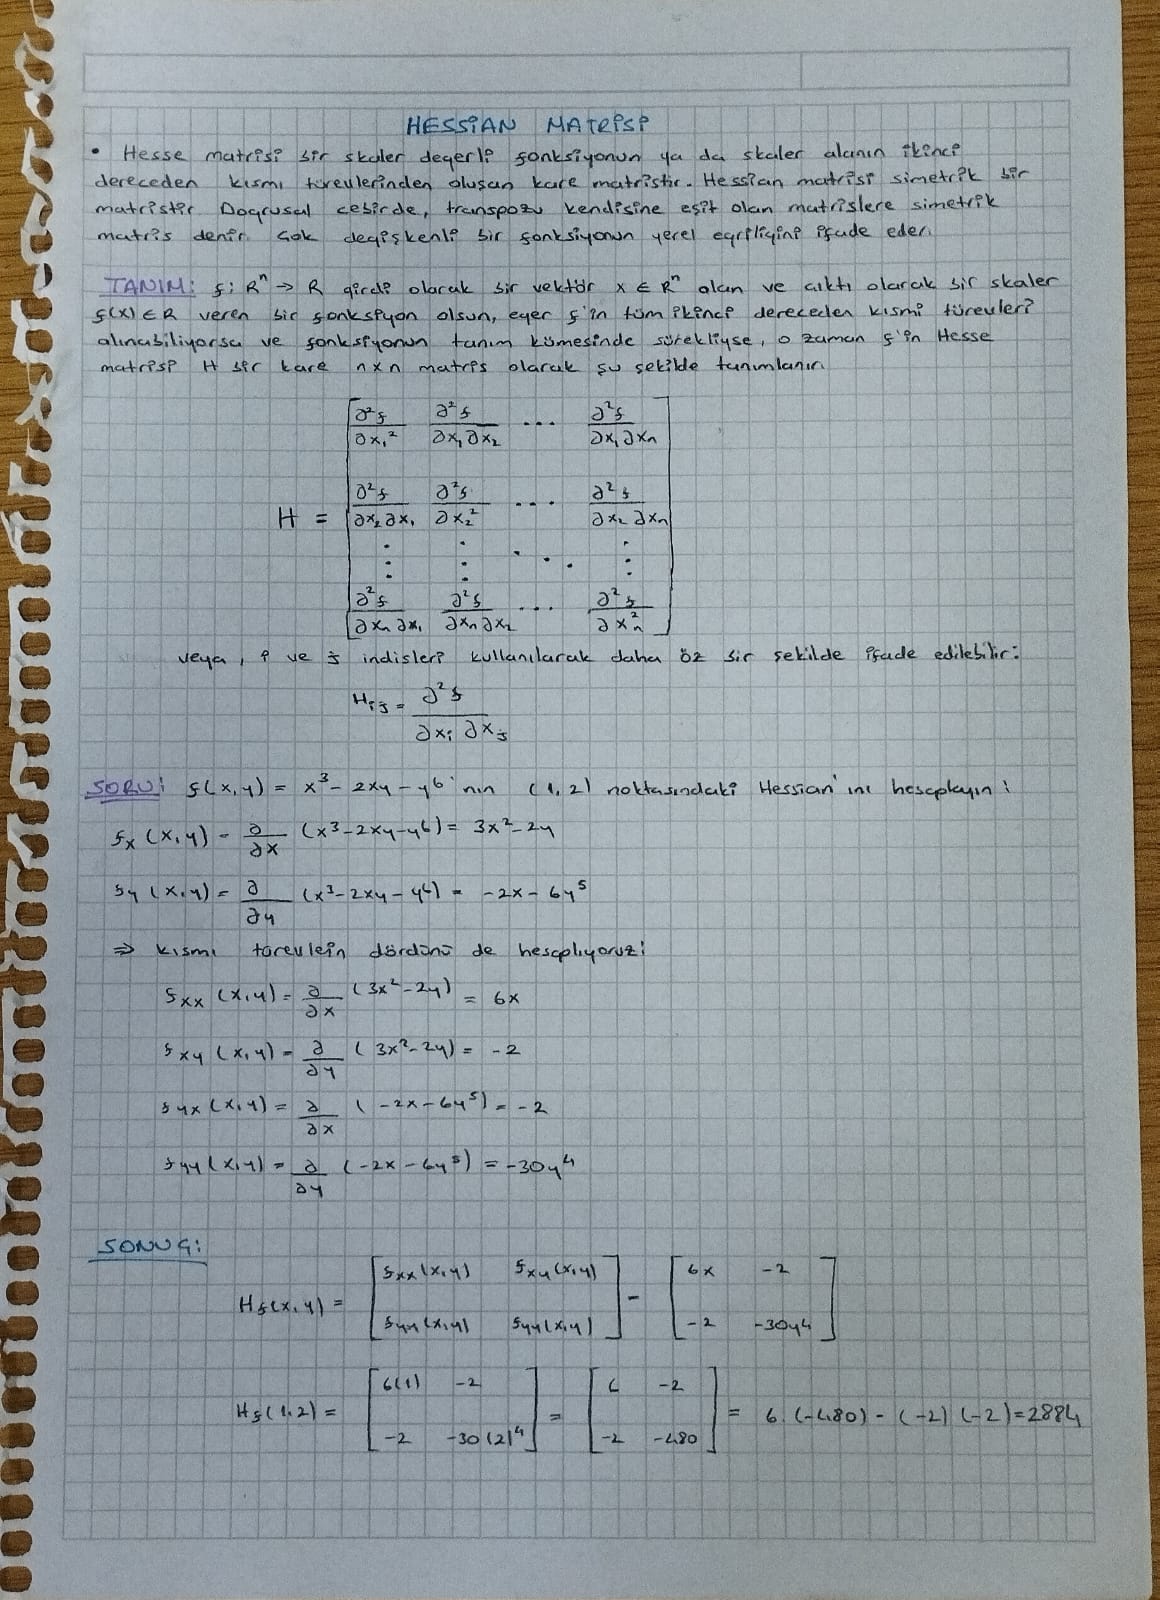 HESSİAN MATRİSİ
• Hesse matrisi bir skaler değerli fonksiyonun ya da skaler alanın ikinci
dereceden kısmi türevlerinden oluşan kare matristir. Hessian matrisi simetrik bir
matristir. Doğrusal cebirde, transpozu kendisine eşit olan matrislere simetrik
matris denir. Çok değişkenli bir fonksiyonun yerel eğriliğini ifade eder.
TANIM: f: Rⁿ → R girdi olarak bir vektör x ∈ Rⁿ alan ve çıktı olarak bir skaler
f(x) ∈ R veren bir fonksiyon olsun, eğer f'in tüm ikinci dereceden kısmi türevleri
alınabiliyorsa ve fonksiyonun tanım kümesinde sürekliyse, o zaman f'in Hesse
matrisi H bir kare n×n matris olarak şu şekilde tanımlanır.
H = [ ∂²f/∂x₁² ∂²f/∂x₁∂x₂ ... ∂²f/∂x₁∂xₙ
∂²f/∂x₂∂x₁ ∂²f/∂x₂² ... ∂²f/∂x₂∂xₙ
⋮ ⋮ ⋱ ⋮
∂²f/∂xₙ∂x₁ ∂²f/∂xₙ∂x₂ ... ∂²f/∂xₙ² ]
veya, i ve j indisleri kullanılarak daha öz bir şekilde ifade edilebilir:
Hᵢⱼ = ∂²f/∂xᵢ∂xⱼ
SORU: f(x,y) = x³ - 2xy - y⁶'nın (1,2) noktasındaki Hessian'ını hesaplayın:
fx (x,y) = ∂/∂x (x³-2xy-y⁶) = 3x²-2y
fy (x,y) = ∂/∂y (x³-2xy-y⁶) = -2x-6y⁵
⇒ kısmı türevlein dördünü de hesaplıyoruz:
fxx (x,y) = ∂/∂x (3x²-2y) = 6x
fxy (x,y) = ∂/∂y (3x²-2y) = -2
fyx (x,y) = ∂/∂x (-2x-6y⁵) = -2
fyy (x,y) = ∂/∂y (-2x-6y⁵) = -30y⁴
SONUÇ:
Hf(x,y) = [ fxx(x,y) fxy(x,y) ; fyx(x,y) fyy(x,y) ] = [ 6x -2 ; -2 -30y⁴ ]
Hf(1,2) = [ 6(1) -2 ; -2 -30(2)⁴ ] = [ 6 -2 ; -2 -480 ] = 6.(-480) - (-2)(-2) = 2884